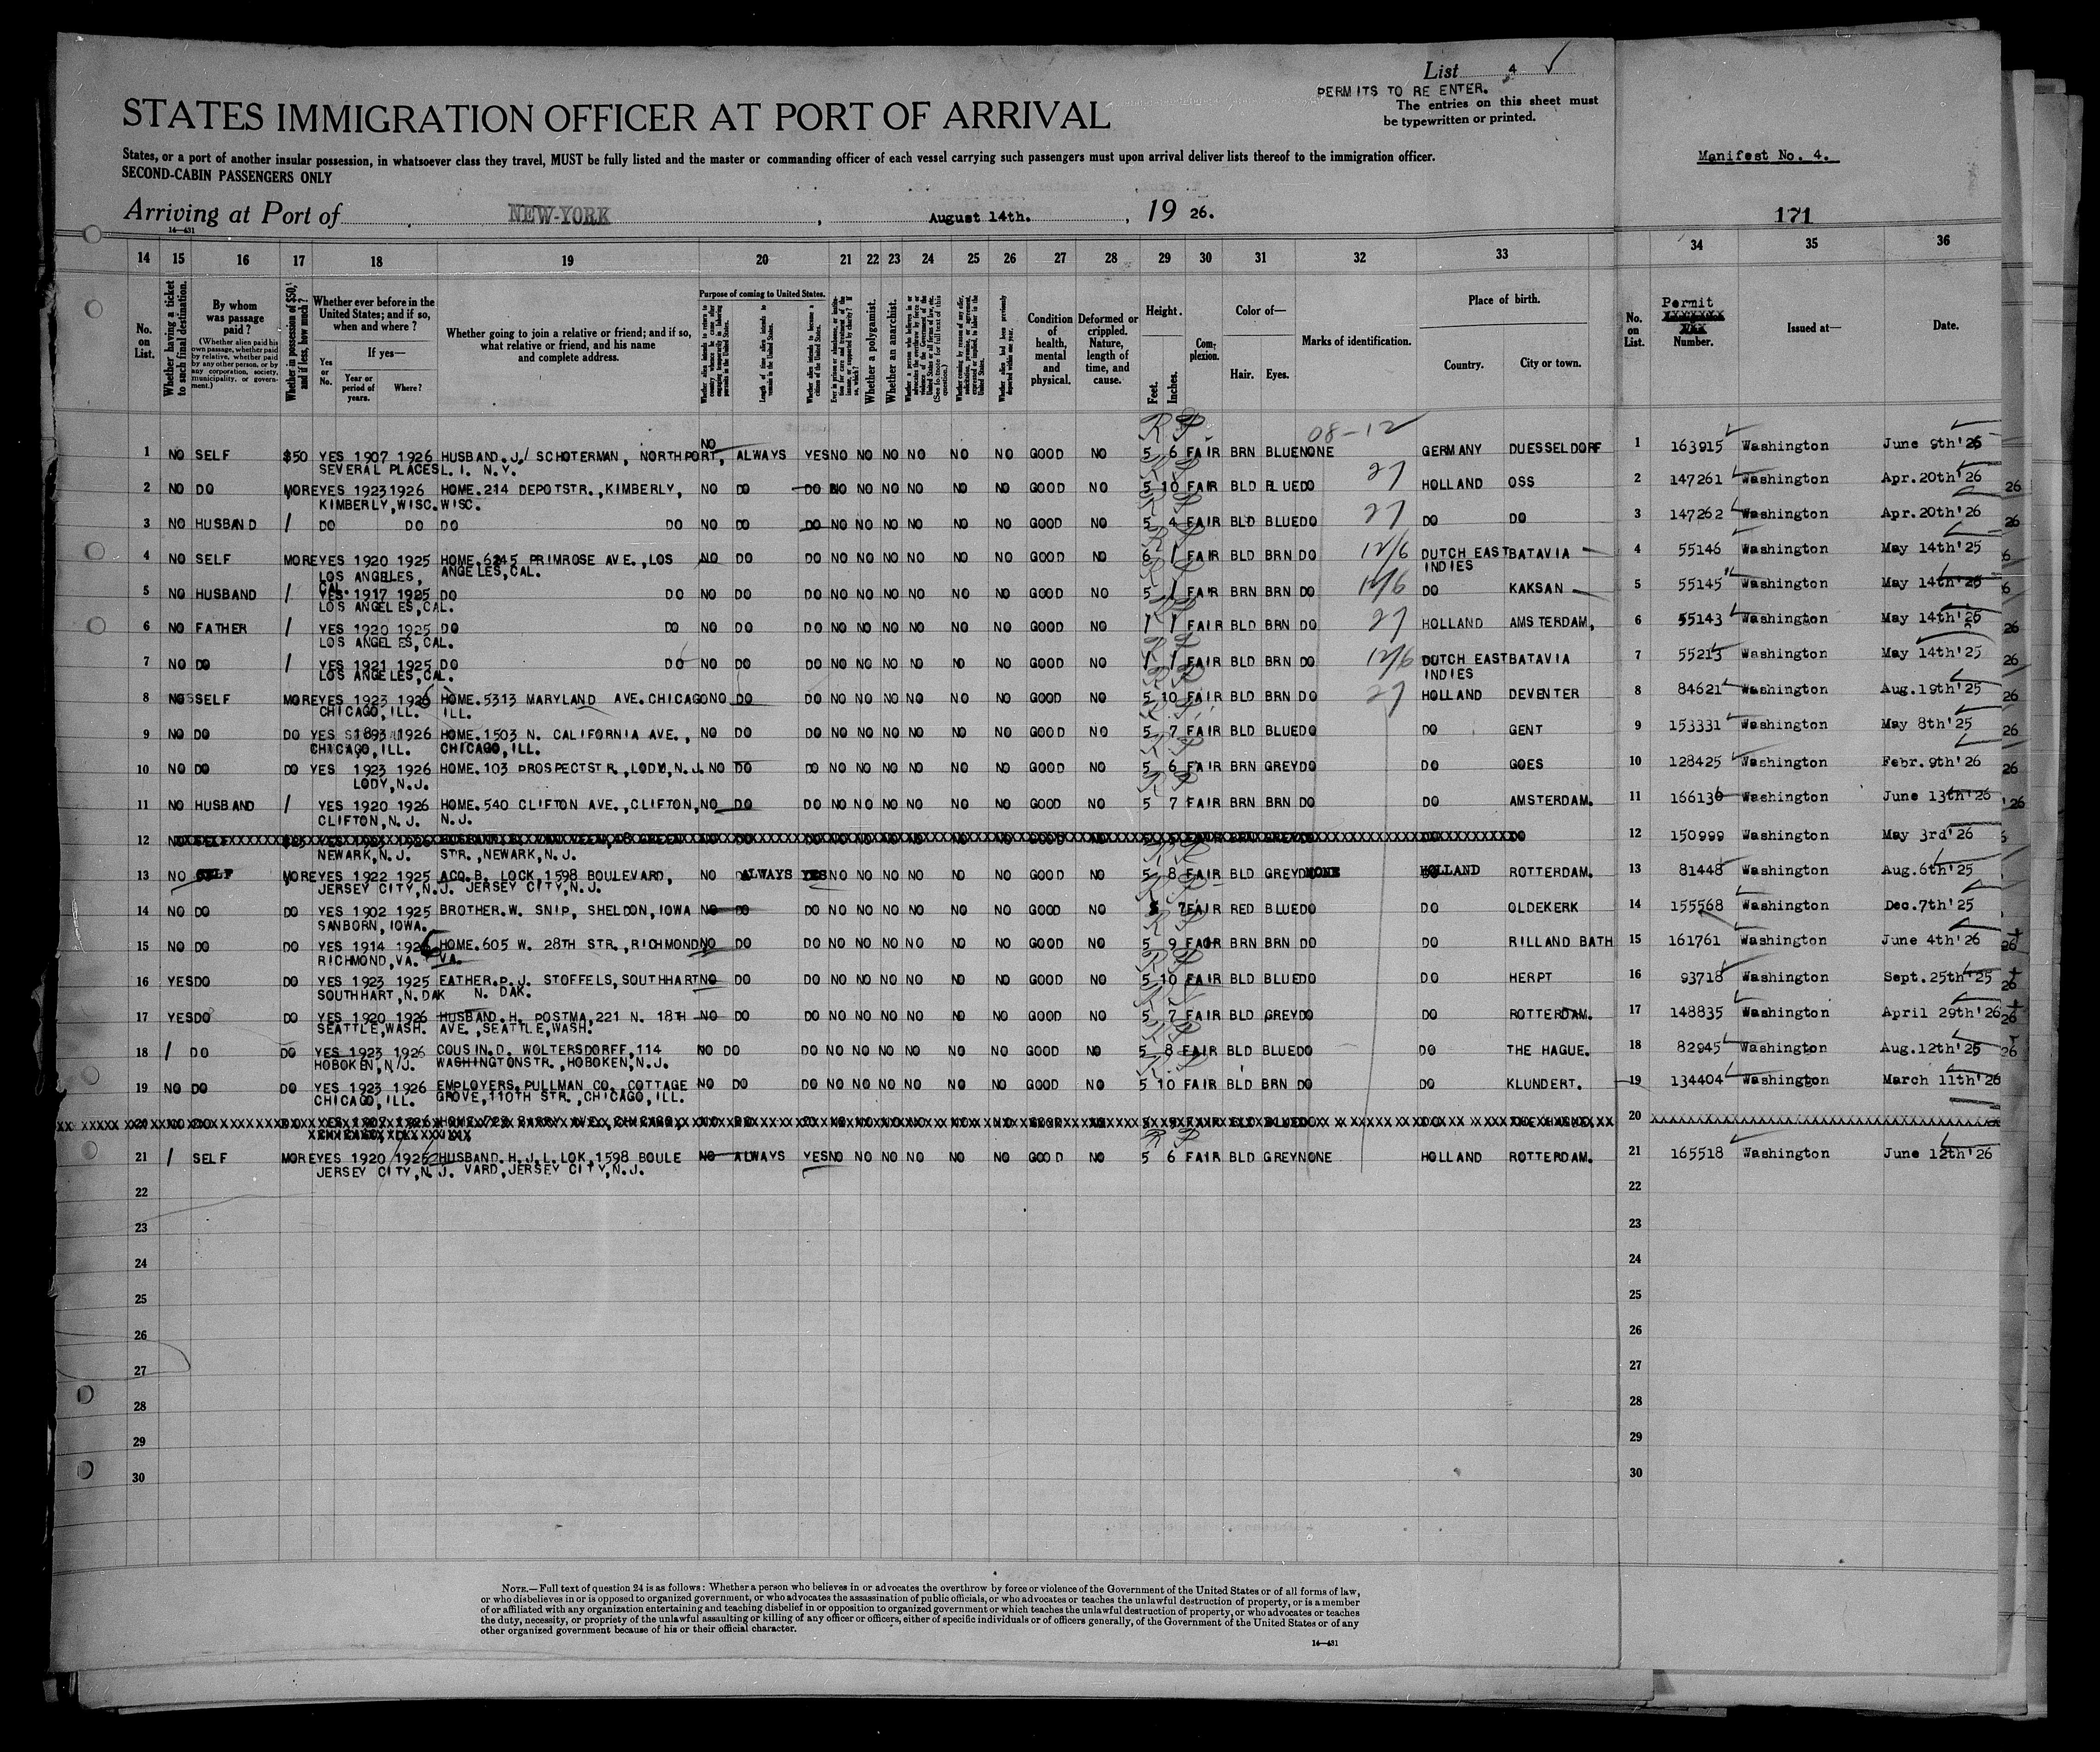 List 4 ✓
PERMITS TO RE ENTER.
The entries on this sheet must
be typewritten or printed.
STATES IMMIGRATION OFFICER AT PORT OF ARRIVAL
States, or a port of another insular possession, in whatsoever class they travel, MUST be fully listed and the master or commanding officer of each vessel carrying such passengers must upon arrival deliver lists thereof to the immigration officer.
SECOND-CABIN PASSENGERS ONLY
Manifest No. 4.
Arriving at Port of NEW-YORK, August 14th., 19 26.
171
14—431
14 15 16 17 18 19 20 21 22 23 24 25 26 27 28 29 30 31 32 33 34 35 36
No. on List.
Whether having a ticket to such final destination.
By whom was passage paid?
(Whether alien paid his own passage, whether paid by relative, whether paid by any other person, or by any corporation, society, municipality, or government.)
Whether in possession of $50, and if less, how much?
Whether ever before in the United States; and if so, when and where?
Yes or No.
If yes—
Year or period of years.
Where?
Whether going to join a relative or friend; and if so, what relative or friend, and his name and complete address.
Purpose of coming to United States.
Length of time alien intends to remain in the United States.
Whether alien intends to become a citizen of the United States.
Whether a polygamist.
Whether an anarchist.
Condition of health, mental and physical.
Deformed or crippled. Nature, length of time, and cause.
Height.
Feet.
Inches.
Complexion.
Color of—
Hair.
Eyes.
Marks of identification.
Place of birth.
Country.
City or town.
No. on List.
Permit
Number.
Issued at—
Date.
08-12
1 NO SELF $50 YES 1907 1926 HUSBAND. J. SCHOTERMAN, NORTHPORT, NO ALWAYS YES NO NO NO NO NO NO GOOD NO 5 6 FAIR BRN BLUE NONE GERMANY DUESSELDORF 1 163915 Washington June 9th'26
SEVERAL PLACES L. I. N.Y.
2 NO DO MORE YES 1923 1926 HOME. 214 DEPOTSTR., KIMBERLY, NO DO DO NO NO NO NO NO NO GOOD NO 5 10 FAIR BLD BLUE DO 27 HOLLAND OSS 2 147261 Washington Apr. 20th'26
KIMBERLY, WISC. WISC.
3 NO HUSBAND / DO DO DO DO NO DO DO NO NO NO NO NO NO GOOD NO 5 4 FAIR BLD BLUE DO 27 DO DO 3 147262 Washington Apr. 20th'26
4 NO SELF MORE YES 1920 1925 HOME. 6245 PRIMROSE AVE., LOS NO DO DO NO NO NO NO NO NO GOOD NO 6 1 FAIR BLD BRN DO 12/6 DUTCH EAST BATAVIA 4 55146 Washington May 14th'25
LOS ANGELES, CAL. ANGELES, CAL. INDIES
5 NO HUSBAND / YES 1917 1925 DO DO NO DO DO NO NO NO NO NO NO GOOD NO 5 1 FAIR BRN BRN DO 12/6 DO KAKSAN 5 55145 Washington May 14th'25
LOS ANGELES, CAL.
6 NO FATHER / YES 1920 1925 DO DO NO DO DO NO NO NO NO NO NO GOOD NO / / FAIR BLD BRN DO 27 HOLLAND AMSTERDAM, 6 55143 Washington May 14th'25
LOS ANGELES, CAL.
7 NO DO / YES 1921 1925 DO DO NO DO DO NO NO NO NO NO NO GOOD NO / / FAIR BLD BRN DO 12/6 DUTCH EAST BATAVIA 7 55213 Washington May 14th'25
LOS ANGELES, CAL. INDIES
8 NO SELF MORE YES 1923 1926 HOME. 5313 MARYLAND AVE. CHICAGO NO DO DO NO NO NO NO NO NO GOOD NO 5 10 FAIR BLD BRN DO 27 HOLLAND DEVENTER 8 84621 Washington Aug. 19th'25
CHICAGO, ILL. ILL.
9 NO DO DO YES 1893 1926 HOME. 1503 N. CALIFORNIA AVE., NO DO DO NO NO NO NO NO NO GOOD NO 5 7 FAIR BLD BLUE DO DO GENT 9 153331 Washington May 8th'25
CHICAGO, ILL. CHICAGO, ILL.
10 NO DO DO YES 1923 1926 HOME. 103 PROSPECTSTR., LODY, N.J. NO DO DO NO NO NO NO NO NO GOOD NO 5 6 FAIR BRN GREY DO DO GOES 10 128425 Washington Febr. 9th'26
LODY, N.J.
11 NO HUSBAND / YES 1920 1926 HOME. 540 CLIFTON AVE., CLIFTON, NO DO DO NO NO NO NO NO NO GOOD NO 5 7 FAIR BRN BRN DO DO AMSTERDAM. 11 166130 Washington June 13th'26
CLIFTON, N.J. N.J.
12 150999 Washington May 3rd'26
NEWARK, N.J. STR., NEWARK, N.J.
13 NO SELF MORE YES 1922 1925 ACQ. B. LOCK, 1598 BOULEVARD, NO ALWAYS YES NO NO NO NO NO NO GOOD NO 5 8 FAIR BLD GREY NONE HOLLAND ROTTERDAM. 13 81448 Washington Aug. 6th'25
JERSEY CITY, N.J. JERSEY CITY, N.J.
14 NO DO DO YES 1902 1925 BROTHER. W. SNIP, SHELDON, IOWA NO DO DO NO NO NO NO NO NO GOOD NO 5 7 FAIR RED BLUE DO DO OLDEKERK 14 155568 Washington Dec. 7th'25
SANBORN, IOWA.
15 NO DO DO YES 1914 1926 HOME. 605 W. 28TH STR., RICHMOND NO DO DO NO NO NO NO NO NO GOOD NO 5 9 FAIR BRN BRN DO DO RILLAND BATH 15 161761 Washington June 4th'26
RICHMOND, VA. VA.
16 YES DO DO YES 1923 1925 FATHER. P. J. STOFFELS, SOUTHHART NO DO DO NO NO NO NO NO NO GOOD NO 5 10 FAIR BLD BLUE DO DO HERPT 16 93718 Washington Sept. 25th'25
SOUTHHART, N. DAK N. DAK.
17 YES DO DO YES 1920 1926 HUSBAND. H. POSTMA, 221 N. 18TH NO DO DO NO NO NO NO NO NO GOOD NO 5 7 FAIR BLD GREY DO DO ROTTERDAM. 17 148835 Washington April 29th'26
SEATTLE, WASH. AVE., SEATTLE, WASH.
18 / DO DO YES 1923 1926 COUSIN. D. WOLTERSDORFF, 114 NO DO DO NO NO NO NO NO NO GOOD NO 5 8 FAIR BLD BLUE DO DO THE HAGUE. 18 82945 Washington Aug. 12th'25
HOBOKEN, N/J. WASHINGTONSTR., HOBOKEN, N.J.
19 NO DO DO YES 1923 1926 EMPLOYERS. PULLMAN CO. COTTAGE NO DO DO NO NO NO NO NO NO GOOD NO 5 10 FAIR BLD BRN DO DO KLUNDERT. 19 134404 Washington March 11th'26
CHICAGO, ILL. GROVE, 110TH STR., CHICAGO, ILL.
20
21 / SELF MORE YES 1920 1925 HUSBAND. H. J. L. LOK 1598 BOULE NO ALWAYS YES NO NO NO NO NO NO GOOD NO 5 6 FAIR BLD GREY NONE HOLLAND ROTTERDAM. 21 165518 Washington June 12th'26
JERSEY CITY, N.J. VARD, JERSEY CITY, N.J.
22 22
23 23
24 24
25 25
26 26
27 27
28 28
29 29
30 30
NOTE.—Full text of question 24 is as follows: Whether a person who believes in or advocates the overthrow by force or violence of the Government of the United States or of all forms of law,
or who disbelieves in or is opposed to organized government, or who advocates the assassination of public officials, or who advocates or teaches the unlawful destruction of property, or is a member
of or affiliated with any organization entertaining and teaching disbelief in or opposition to organized government or which teaches the unlawful destruction of property, or who advocates or teaches
the duty, necessity, or propriety of the unlawful assaulting or killing of any officer or officers, either of specific individuals or of officers generally, of the Government of the United States or of any
other organized government because of his or their official character.
14—431